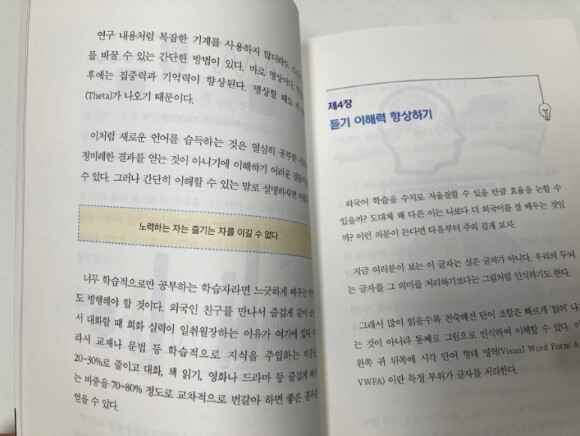 연구 내용처럼 복잡한 기계를 사용하지 않더라도
를 바꿀 수 있는 간단한 방법이 있다. 바로 명상이다.
후에는 집중력과 기억력이 향상된다. 명상할 때도
(Theta)가 나오기 때문이다.
이처럼 새로운 언어를 습득하는 것은 열심히 공부한
정비례한 결과를 얻는 것이 아니기에 이해하기 어려운
수 있다. 그러나 간단히 이해할 수 있는 말로 설명하자면
노력하는 자는 즐기는 자를 이길 수 없다.
너무 학습적으로만 공부하는 학습자라면 느긋하게 배우는
도 병행해야 할 것이다. 외국인 친구를 만나서 즐겁게
서 대화할 때 회화 실력이 일취월장하는 이유가 여기에 있다.
라서 교재나 문법 등 학습적으로 지식을 주입하는 비중을
20~30%로 줄이고 대화, 책 읽기, 영화나 드라마 등 즐겁게
는 비중을 70~80% 정도로 교차적으로 번갈아 하면 좋은
얻을 수 있다.
제4장
듣기 이해력 향상하기
외국어 학습을 수치로 저울질할 수 있을 만큼 효율을 논할 수
있을까? 도대체 왜 다른 이는 나보다 더 외국어를 잘 배우는 것일
까? 이런 의문이 든다면 다음부터 주의 깊게 보자.
지금 여러분이 보는 이 글자는 실은 글자가 아니다. 우리의 두뇌
는 글자를 그 의미를 처리하기보다는 그림처럼 인식하기도 한다.
그래서 많이 읽을수록 친숙해진 단어 조합은 빠르게 '읽어' 나
는 것이 아니라 통째로 그림으로 인식하여 이해할 수 있다.
왼쪽 귀 뒤쪽에 시각 단어 형태 영역(Visual Word Form
VWFA) 이란 특정 부위가 글자를 처리한다.